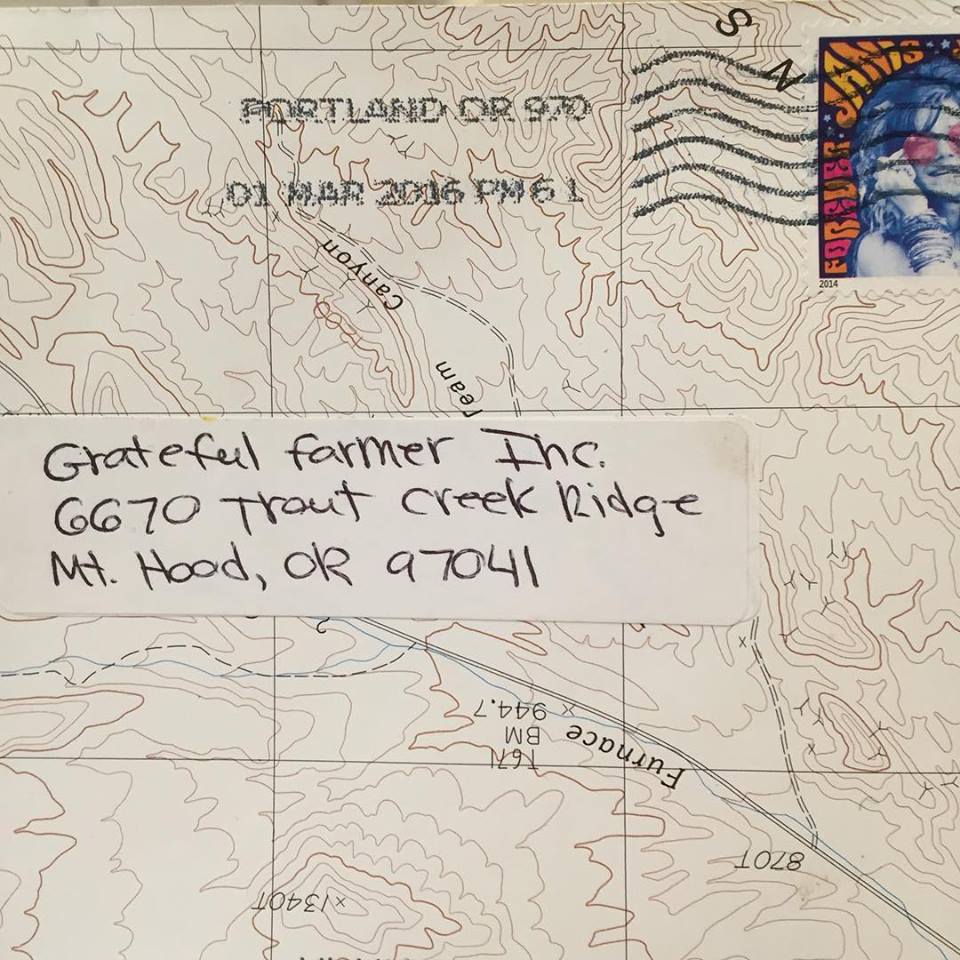 S
N
JANIS
FOREVER
2014
PORTLAND OR 970
01 MAR 2016 PM 6 L
Canyon
1200
ream
Grateful farmer Inc.
6670 Trout Creek Ridge
Mt. Hood, OR 97041
2
×944.7
BM
T67I
Furnace
870T
×1340T